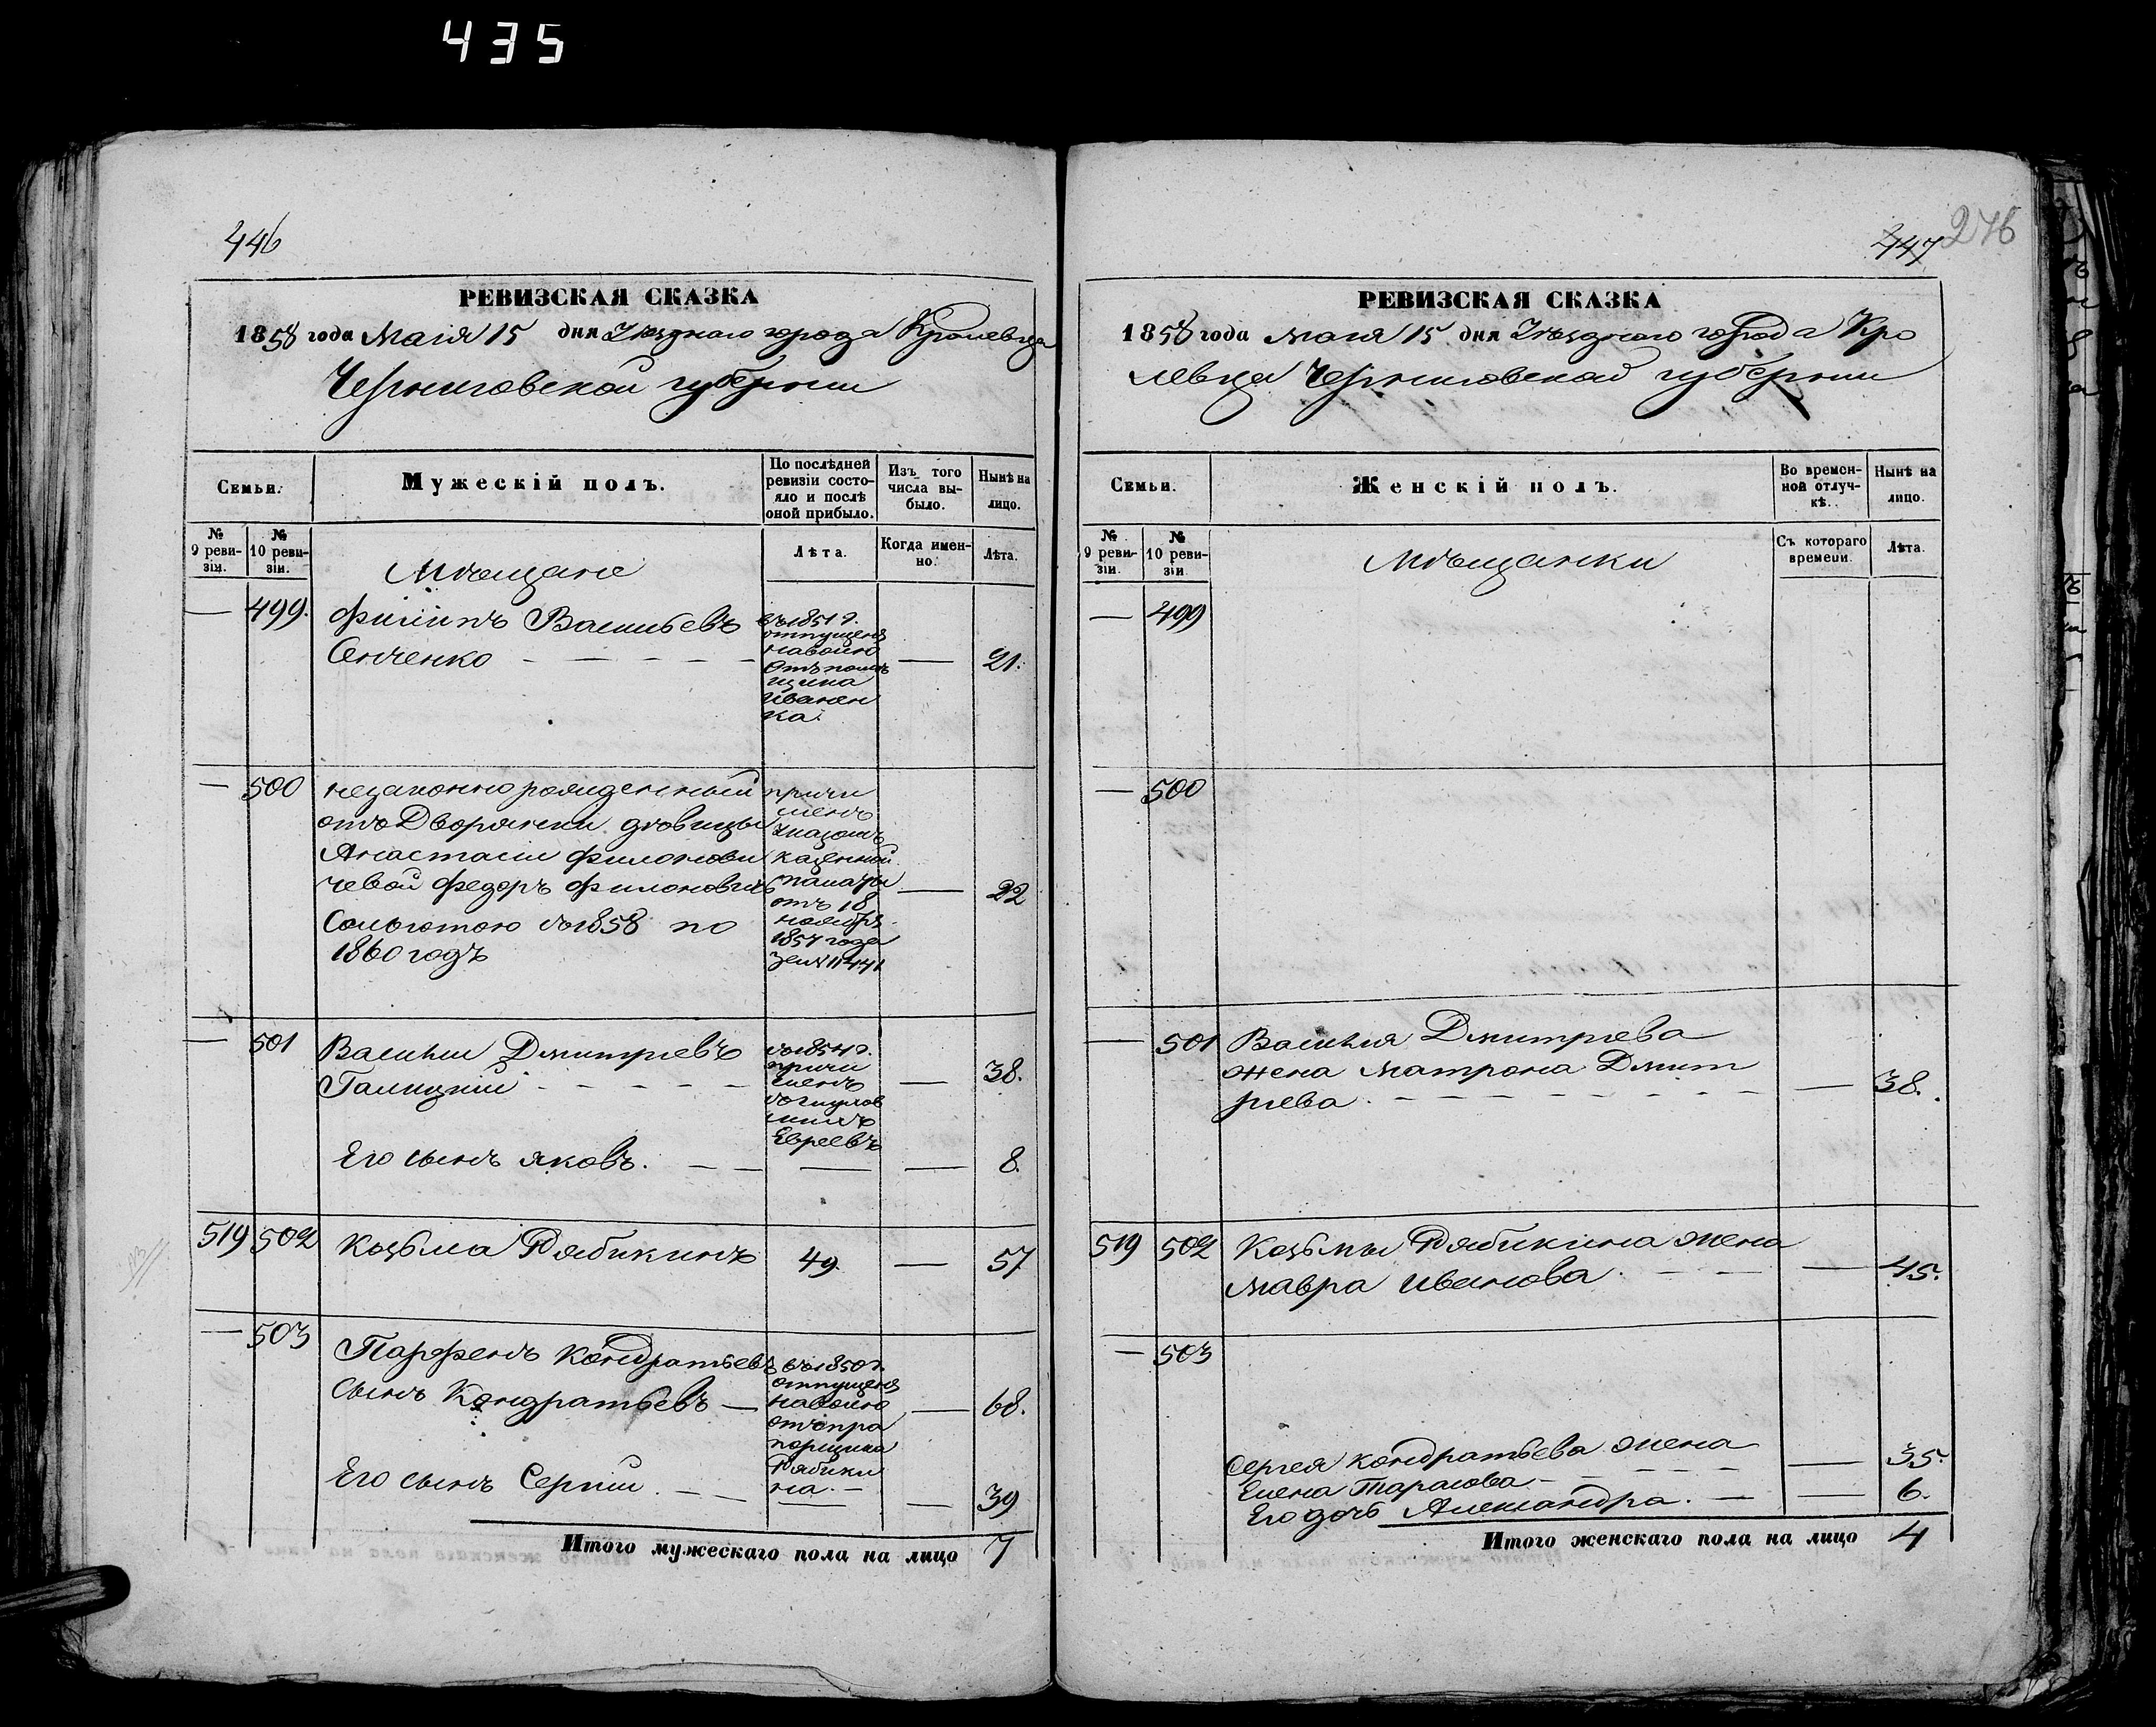 435
446
РЕВИЗСКАЯ СКАЗКА
1858 года Маія 15 дня Уезднаго города Кролевца
Черниговской губерніи
Семьи.
Мужескій полъ.
По послѣдней ревизіи состояло и послѣ оной прибыло.
Изъ того числа выбыло.
Нынѣ на лицо.
№ 9 ревизіи.
№ 10 ревизіи.
Мѣщане
Лѣта.
Когда именно.
Лѣта.
— 499. Филипъ Васильевъ
Сенченко — — — — — — 21.
въ 1851 г.
отпущенъ
наволю
Отъ помѣ
щика
Иванен
ка.
— 500 незаконно рожденный
отъ Дворянки дѣвицы
Анастасіи Филонови
чевой Федоръ Филоновичъ — 22
Сольготою съ 1858 по
1860 годъ
причи
сленъ
Указомъ
казенной
палаты
отъ 18
ноября
1857 года
за № 11441
— 501 Василий Дмитріевъ
Галицкий — — — — — — 38.
въ 1854 г.
причи
сленъ
Евреевъ
Его сынъ Яковъ. — — — — 8.
519 502 Козьма Рябикинъ 49. — 57
— 503 Парфенъ Кондратьевъ
Сынъ Кондратьевъ — — 68.
въ 1850 г.
отпущенъ
наволю
отъ пра
порщика
Рябики
на. —
Его сынъ Сергий. — — — — 39
Итого мужескаго пола на лицо 7
447
276
РЕВИЗСКАЯ СКАЗКА
1858 года Маія 15 дня Уезднаго города Кро
левца Черниговской губерніи
Семьи.
Женскій полъ.
Во временной отлучкѣ.
Нынѣ на лицо.
№ 9 ревизіи.
№ 10 ревизіи
Мѣщанки
Съ котораго времени.
Лѣта.
— 499
— 500
— 501 Василия Дмитріева
жена Матрона Дмит
ріева. — — — — — — — — 38.
519 502 Козьмы Рябикина жена
Мавра Иванова. — — — 45.
— 503
Сергея Кондратьева жена
Елена Тарасова — — — — — 35.
Его дочь Александра. — — 6.
Итого женскаго пола на лицо 4